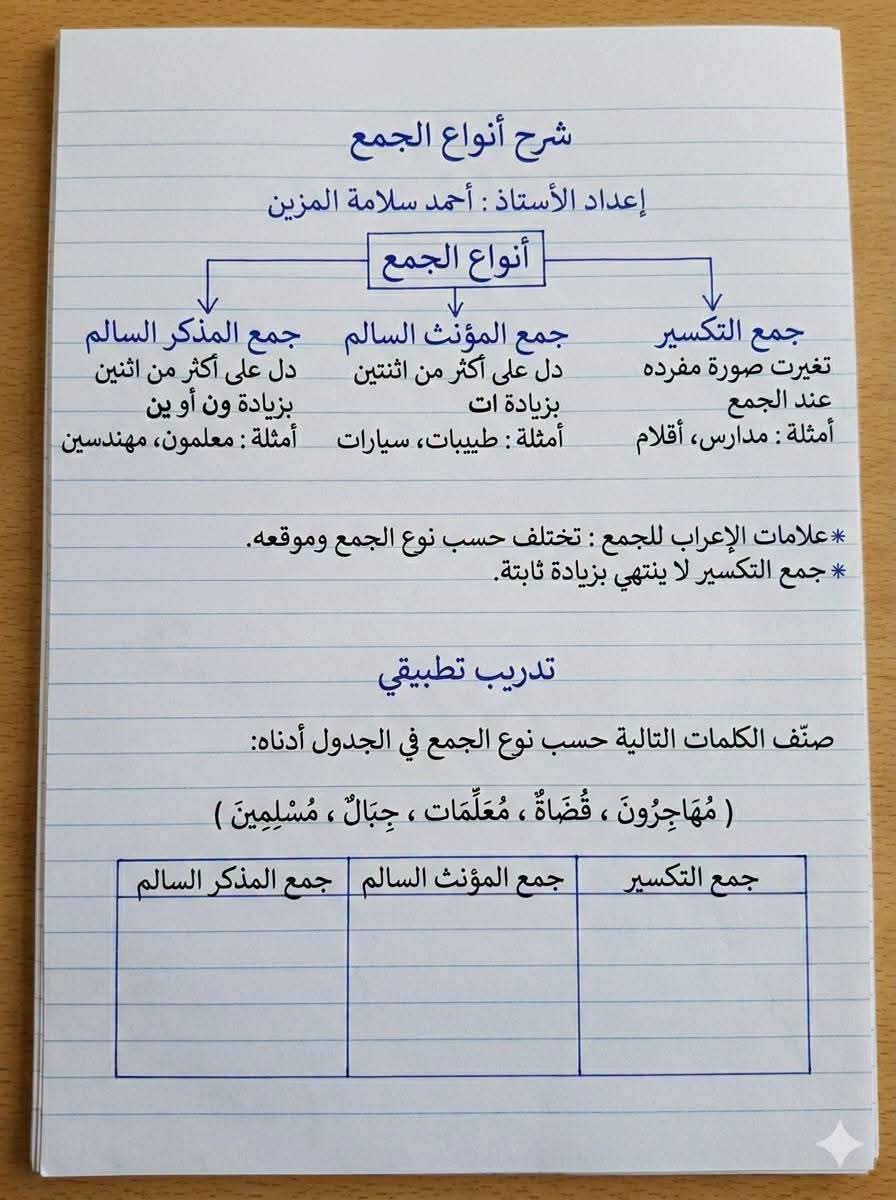 شرح أنواع الجمع
إعداد الأستاذ : أحمد سلامة المزين
أنواع الجمع
جمع التكسير
تغيرت صورة مفرده
عند الجمع
أمثلة : مدارس، أقلام
جمع المؤنث السالم
دل على أكثر من اثنتين
بزيادة ات
أمثلة : طبيبات، سيارات
جمع المذكر السالم
دل على أكثر من اثنين
بزيادة ون أو ين
أمثلة : معلمون، مهندسين
* علامات الإعراب للجمع : تختلف حسب نوع الجمع وموقعه.
* جمع التكسير لا ينتهي بزيادة ثابتة.
تدريب تطبيقي
صنّف الكلمات التالية حسب نوع الجمع في الجدول أدناه:
( مُهَاجِرُونَ ، قُضَاةٌ ، مُعَلِّمَات ، جِبَالٌ ، مُسْلِمِينَ )
جمع التكسير
جمع المؤنث السالم
جمع المذكر السالم